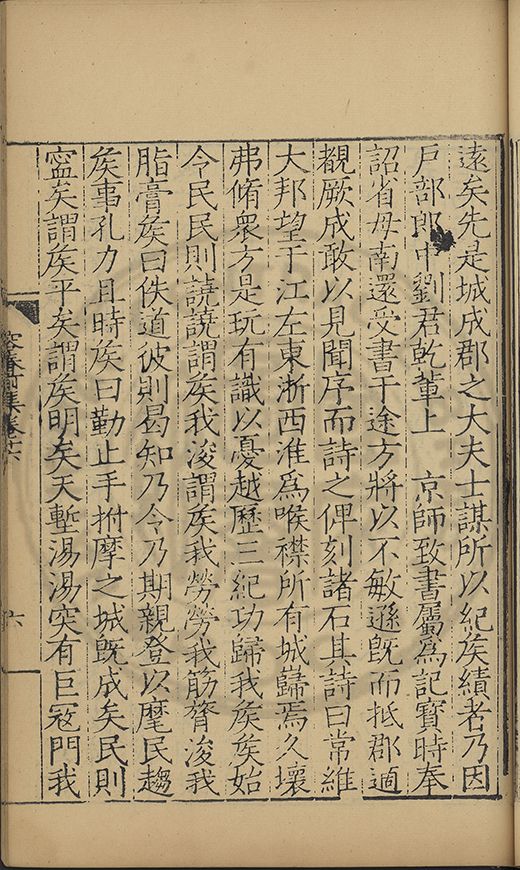 遠矣先是城成郡之大夫士謀所以紀矦績者乃因
戶部郎中劉君乾葷上　京師致書屬爲記寳時奉
詔省母南還受書于途方將以不敏遜旣而抵郡適
覩厥成敢以見聞序而詩之俾刻諸石其詩曰常維
大邦望于江左東浙西淮爲喉襟所有城歸焉久壞
弗脩衆方是玩有識以憂越歷三紀功歸我矦矦始
令民民則譊譊謂矦我浚謂矦我勞勞我筋膂浚我
脂膏矦曰佚道彼則曷知乃令乃期親登以麾民趨
矦事孔力且時矦曰勤止手拊摩之城旣成矣民則
寍矣謂矦平矣謂矦明矣天塹湯湯突有巨冦門我
容春
集卷十六
六